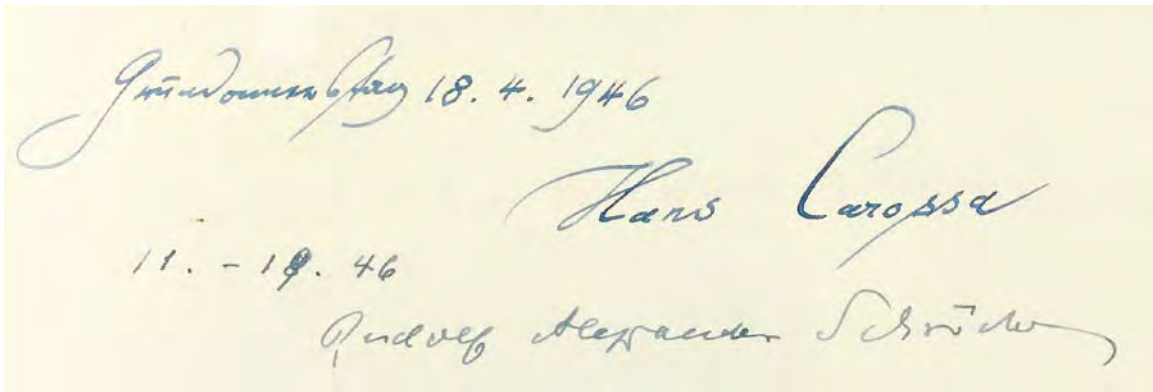 Gründonnerstag 18. 4. 1946
Hans Carossa
11. - 19. 46
Rudolf Alexander Schröder